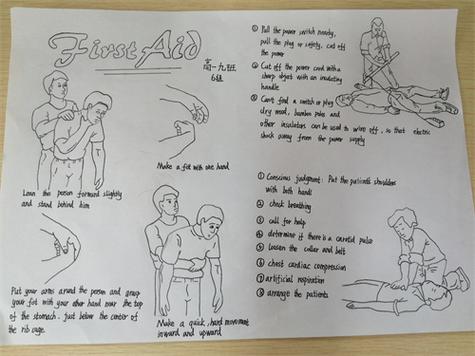 First Aid
高一九班
6组
Lean the person forward slightly
and stand behind him
Make a fist with one hand
Put your arms around the person and grasp
your fist with your other hand near the top
of the stomach, just below the center of
the rib cage.
Make a quick, hard movement
inward and upward
① Pull the power switch nearby,
pull the plug or safety, cut off
the power
② Cut off the power cord with a
sharp object with an insulating
handle
③ Can't find a switch or plug
dry wood, bamboo poles and
other insulators can be used to off, so that electric
shock away from the power supply
① Conscious judgment: Pat the patient's shoulders
with both hands
② check breathing
③ call for help
④ determine if there is a carotid pulse
⑤ loosen the collar and belt
⑥ chest cardiac compression
⑦ artificial respiration
⑧ arrange the patients